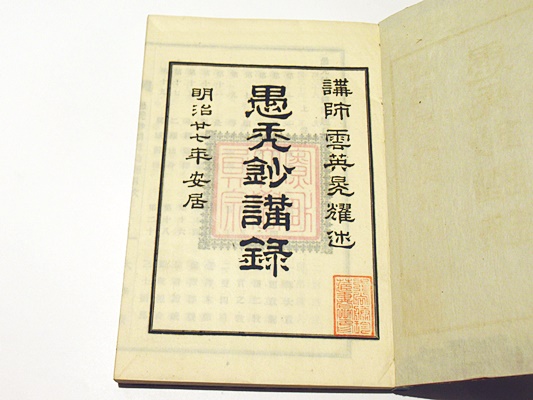 講師 雲英晃耀述
愚禿鈔講録
明治廿七年安居